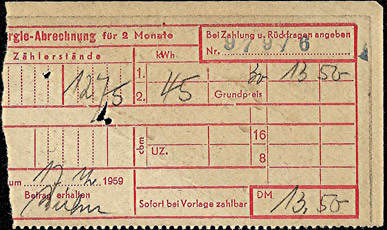 rgie-Abrechnung für 2 Monate
Bei Zahlung u. Rückfragen angeben
Nr. 97976
Zählerstände
kWh
1.
1275
2.
45
13,50
Grundpreis
cbm
UZ.
16
8
um
1959
Betrag erhalten
Sofort bei Vorlage zahlbar
DM
13,50